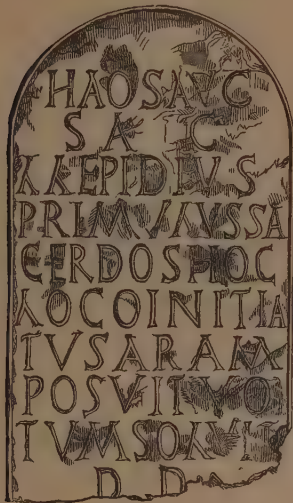 HAOSAVG
SAC
LLEPIDIVS
PRIMVLVSSA
CERDOSHOC
LOCOINITIA
TVSARAM
POSVITVO
TVMSOLVIT
D D